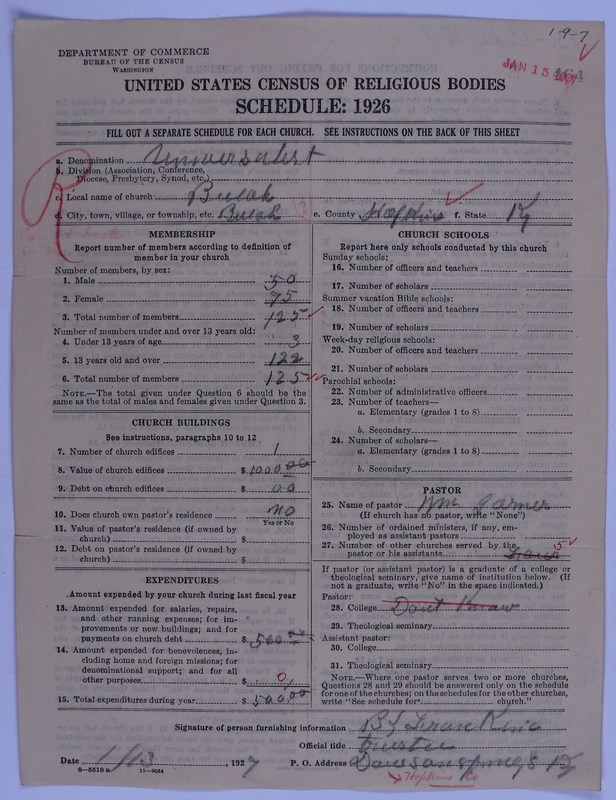 1-9-7
JAN 15 1927
DEPARTMENT OF COMMERCE
BUREAU OF THE CENSUS
WASHINGTON
UNITED STATES CENSUS OF RELIGIOUS BODIES
SCHEDULE: 1926
FILL OUT A SEPARATE SCHEDULE FOR EACH CHURCH. SEE INSTRUCTIONS ON THE BACK OF THIS SHEET
R
a. Denomination Universalist
b. Division (Association, Conference, Diocese, Presbytery, Synod, etc.)
c. Local name of church Bulah
d. City, town, village, or township, etc. Bulah e. County Hopkins f. State Ky
MEMBERSHIP
Report number of members according to definition of member in your church
Number of members, by sex:
1. Male 50
2. Female 75
3. Total number of members 125
Number of members under and over 13 years old:
4. Under 13 years of age 3
5. 13 years old and over 122
6. Total number of members 125
NOTE.—The total given under Question 6 should be the same as the total of males and females given under Question 3.
CHURCH BUILDINGS
See instructions, paragraphs 10 to 12
7. Number of church edifices 1
8. Value of church edifices $1000.00
9. Debt on church edifices $ 00
10. Does church own pastor's residence no
Yes or No
11. Value of pastor's residence (if owned by church) $
12. Debt on pastor's residence (if owned by church) $
EXPENDITURES
Amount expended by church during last fiscal year
13. Amount expended for salaries, repairs, and other running expenses; for improvements or new buildings; and for payments on church debt $ 500.00
14. Amount expended for benevolences, including home and foreign missions; for denominational support; and for all other purposes $ 0
15. Total expenditures during year $ 500.00
CHURCH SCHOOLS
Report here only schools conducted by this church
Sunday schools:
16. Number of officers and teachers
17. Number of scholars
Summer vacation Bible schools:
18. Number of officers and teachers
19. Number of scholars
Week-day religious schools:
20. Number of officers and teachers
21. Number of scholars
Parochial schools:
22. Number of administrative officers
23. Number of teachers—
a. Elementary (grades 1 to 8)
b. Secondary
24. Number of scholars—
a. Elementary (grades 1 to 8)
b. Secondary
PASTOR
25. Name of pastor Wm Garner
(If church has no pastor, write "None")
26. Number of ordained ministers, if any, employed as assistant pastors
27. Number of other churches served by the pastor or his assistants 5
If pastor (or assistant pastor) is a graduate of a college or theological seminary, give name of institution below. (If not a graduate, write "No" in the space indicated.)
Pastor:
28. College Dont Know
29. Theological seminary
Assistant pastor:
30. College
31. Theological seminary
NOTE.—Where one pastor serves two or more churches, Questions 28 and 29 should be answered only on the schedule for one of the churches; on the schedules for the other churches, write "See schedule for church."
Signature of person furnishing information
Official title Trustee
Date 1/13, 1927 P. O. Address Dawson Springs Ky
8—5518a 11—9054
Hopkins Co